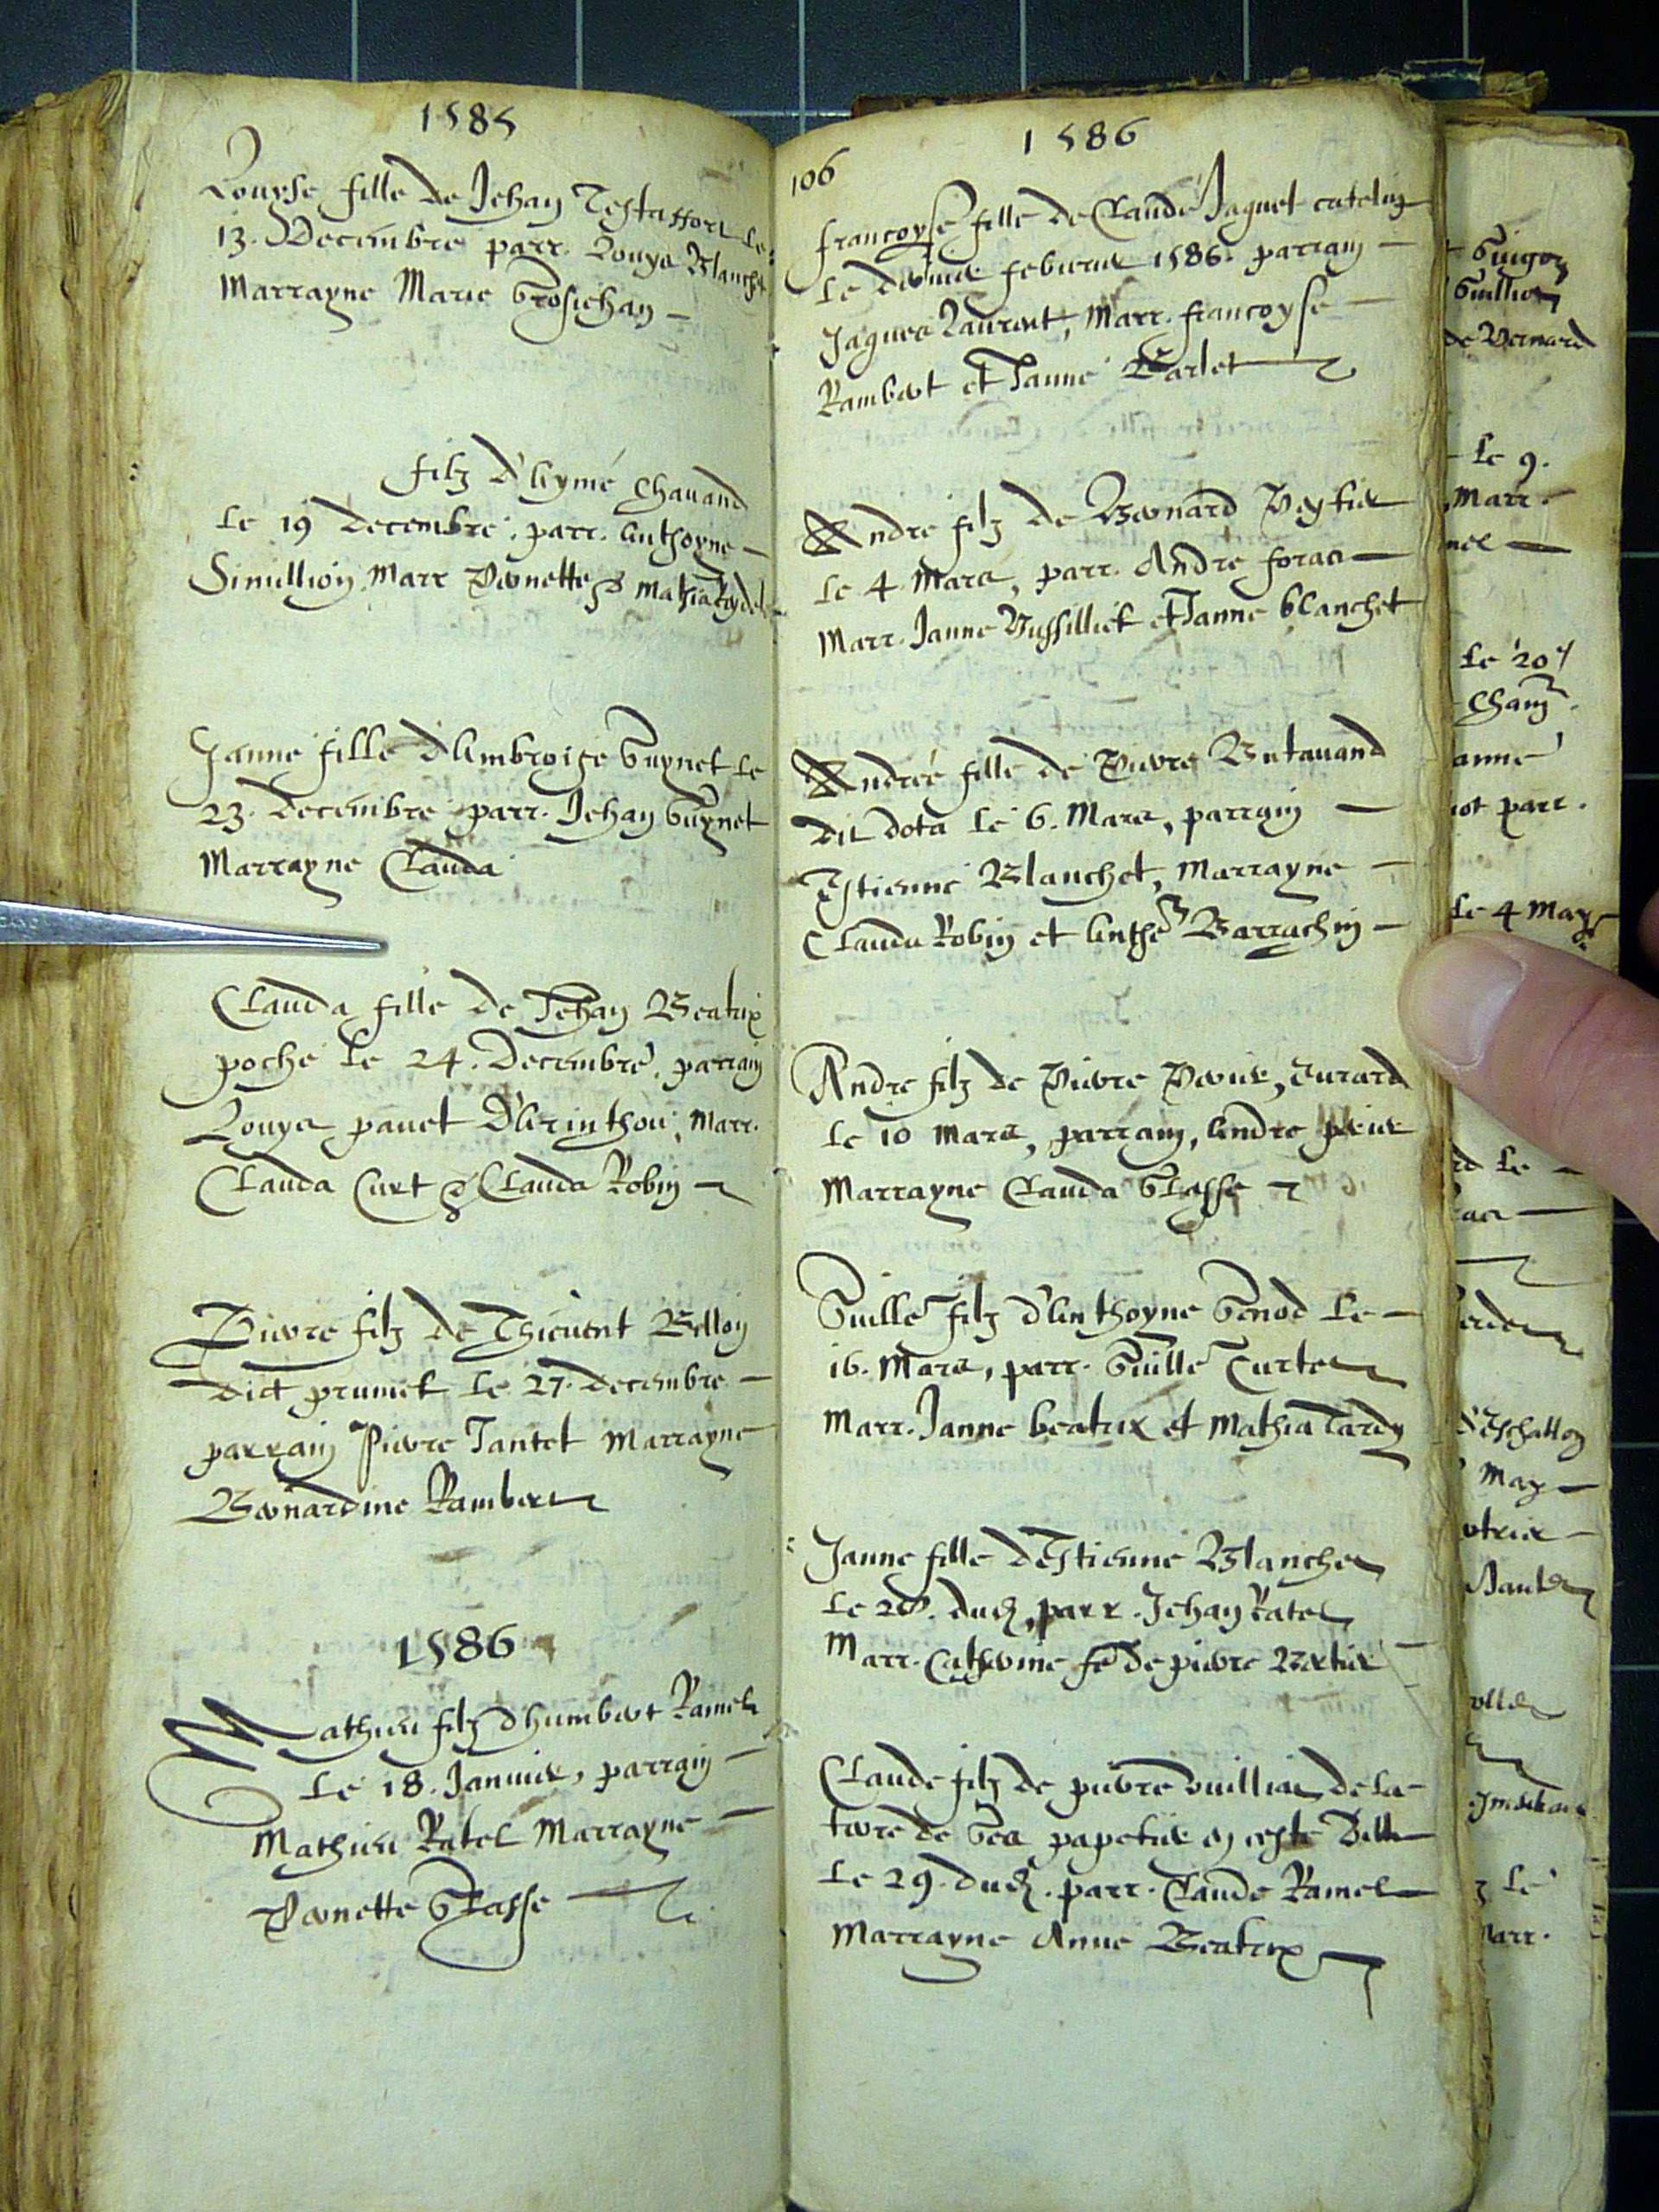 1585
Louyse fille de Jehan Testaffort le
13. Decembre parr. Louys Blanchet
Marrayne Marie Grosjehan
filz d'Aymé Chavand
le 19 decembre. parr. Anthoyne
Simillion Marr Pernette & Mathia
Janne fille d'Ambroise Guynet le
23. decembre parr. Jehan Guynet
Marrayne Clauda
Clauda fille de Jehan Beatrix
poche le 24. Decembre, parrain
Louys pavet D'Arinthou, Marr.
Clauda Curt & Clauda Robin
Pierre filz de Thievent Bellon
dict prumet le 27. decembre
parrain Pierre Jantet Marrayne
Bernardine Rambert
1586
Mathieu filz d'humbert Ramel
Le 18. Janvier, parrain
Mathieu Ratel Marrayne
Pernette Grasse
106
1586
francoyse fille de Claude Jaquet catelin
le dernier febvrier 1586. parrain
Jaques Laurent, Marr. francoyse
Rambert et Janne Carlet
Andre filz de Bernard Veytier
le 4 Mars, parr. Andre foras
Marr. Janne Vussilliet et Janne blanchet
Andreé fille de Pierre Butavand
dit dota le 6. Mars, parrain
Estienne Blanchet, Marrayne
Clauda Robin et Anthe Barrachin
Andre filz de Pierre Perrier, Jurard
le 10 Mars, parrain, Andre
Marrayne Clauda Grasse
Guille filz d'Anthoyne Genod le
16. Mars, parr. Guille Curtet
Marr. Janne beatrix et Mathia Tardy
Janne fille d'Estienne Blanchet
le 28. dud, parr. Jehan Ratel
Marr. Catherine fe de pierre Bertier
Claude filz de pierre vuilliar de la
terre de Gex papetier en ceste Ville
le 29. dud. parr. Claude Ramel
Marrayne Anne Beatrix
Guigon
Guillier
de Bernard
le 9.
Marr.
le 20
Cham
anne
parr.
le 4 May
le
May
le
Marr.